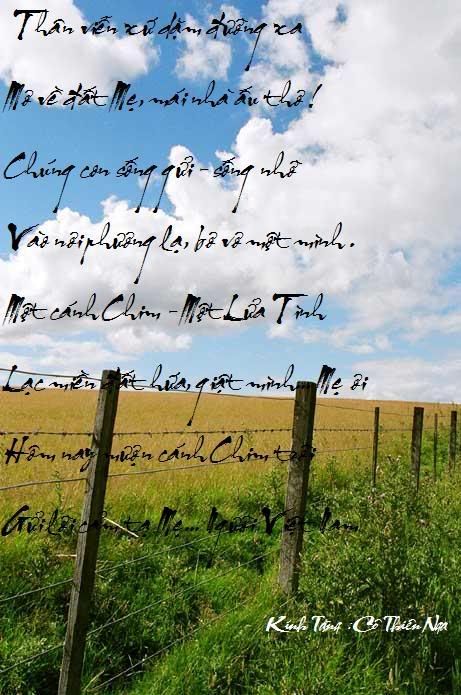 Thân viễn xứ dặm đường xa
Mơ về đất Mẹ, mái nhà ấu thơ !
Chúng con sống gửi - sống nhờ
Vào nơi phương lạ, bơ vơ một mình .
Một cánh Chim - Một Lửa Tình
Lạc miền đất hứa, giật mình... Mẹ ơi
Hôm nay mượn cánh Chim trời
Gửi Lời cảm tạ Mẹ... Người Việt Nam
Kính Tặng : Cô Thiên Nga